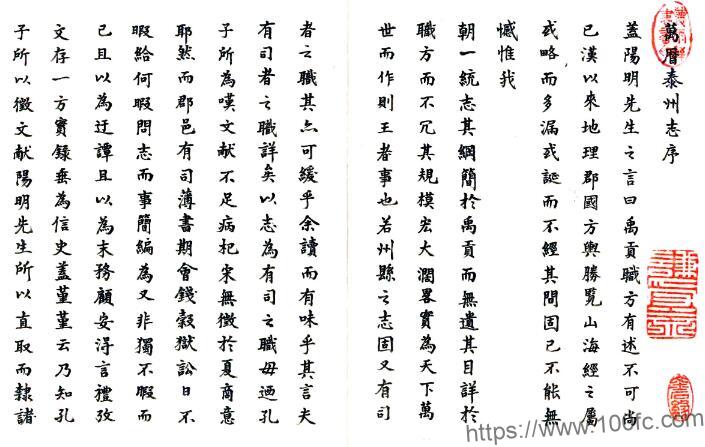 萬曆泰州志序
蓋陽明先生之言曰禹貢職方有述不可尚
已漢以來地理郡國方輿勝覧山海經之屬
或略而多漏或誕而不經其間固已不能無
憾惟我
朝一統志其綱簡於禹貢而無遺其目詳於
職方而不冗其規模宏大濶畧實為天下萬
世而作則王者事也若州縣之志固又有司
者之職其亦可緩乎余讀而有味乎其言夫
有司者之職詳矣以志為有司之職毋迺孔
子所為嘆文献不足病杞宋無徵於夏商意
耶然而郡邑有司薄書期會錢穀獄訟日不
暇給何暇問志而事簡編為又非獨不暇而
已且以為迂譚且以為末務顧安得言禮攷
文存一方實錄垂為信史蓋堇堇云乃知孔
子所以徵文献陽明先生所以直取而隸諸
https://www.100fc.com